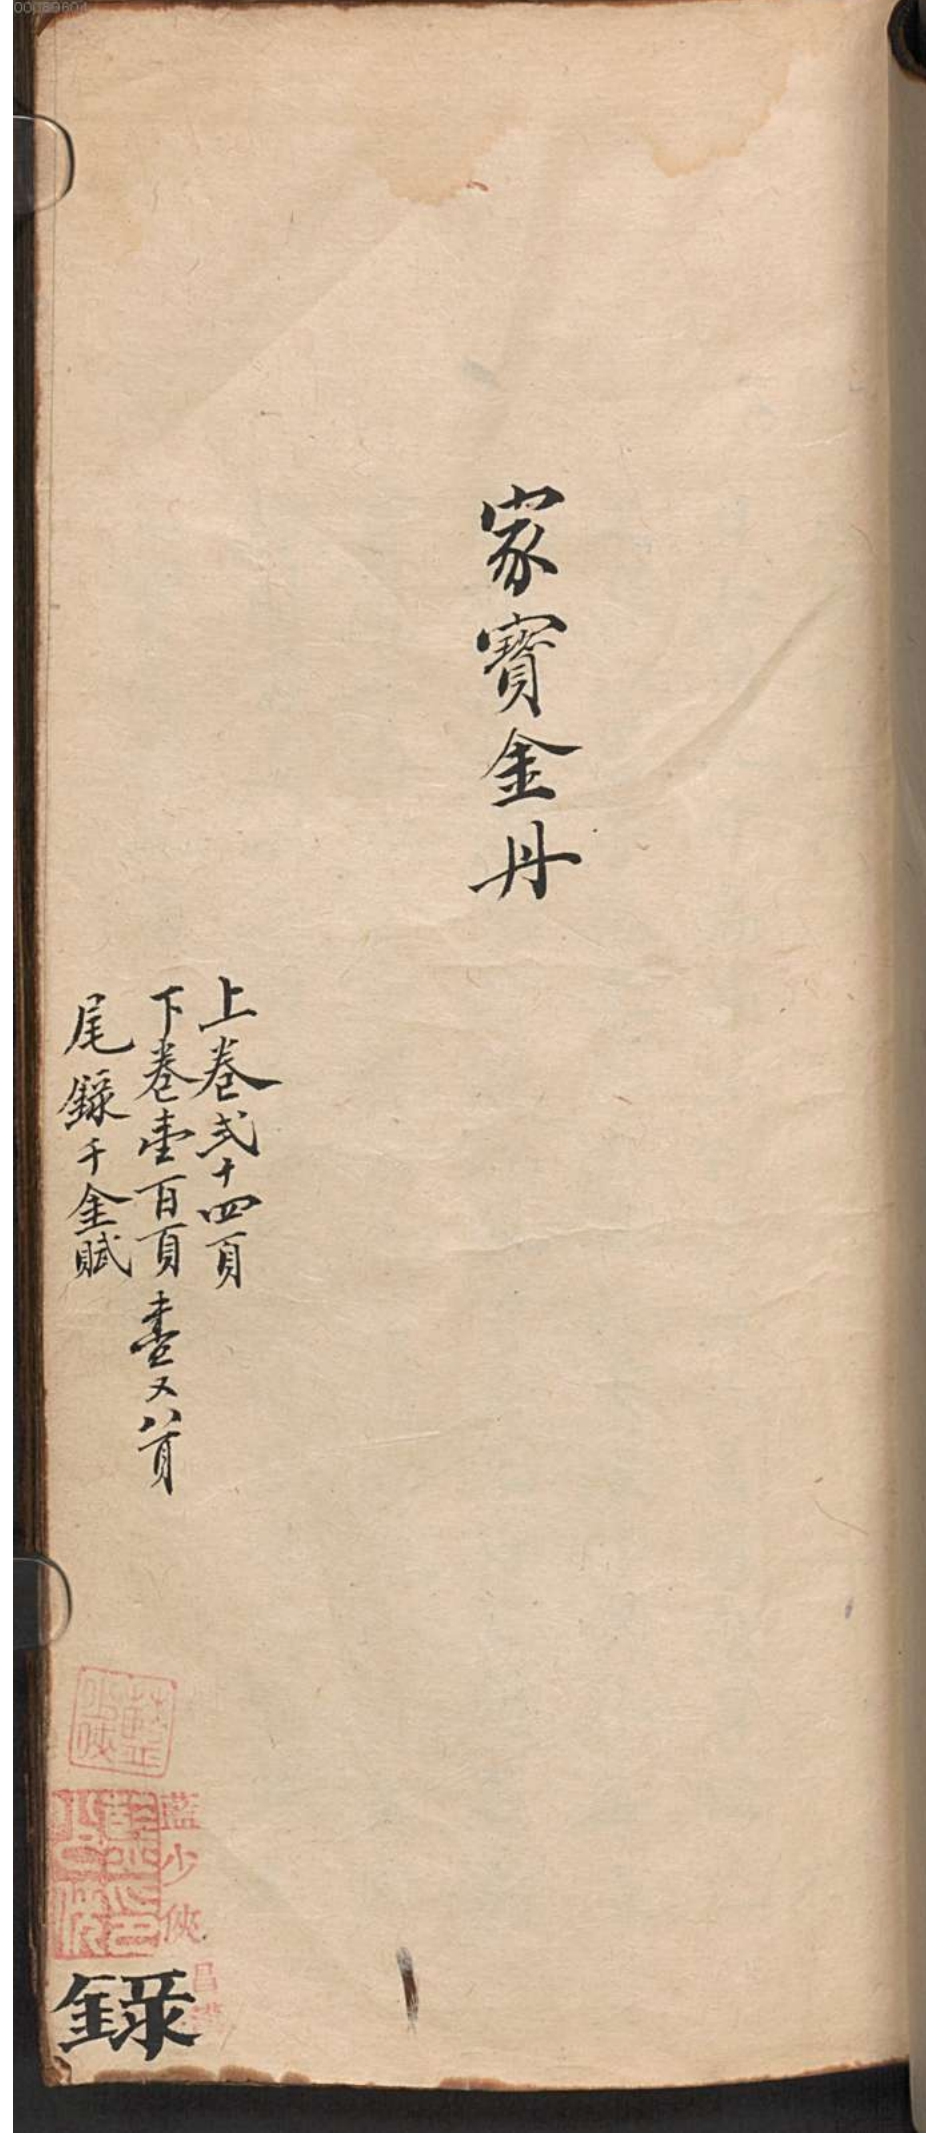 家寶金丹
上卷弍十四頁
下卷壹百頁 壹又首
尾錄千金賦
藍少俠
錄